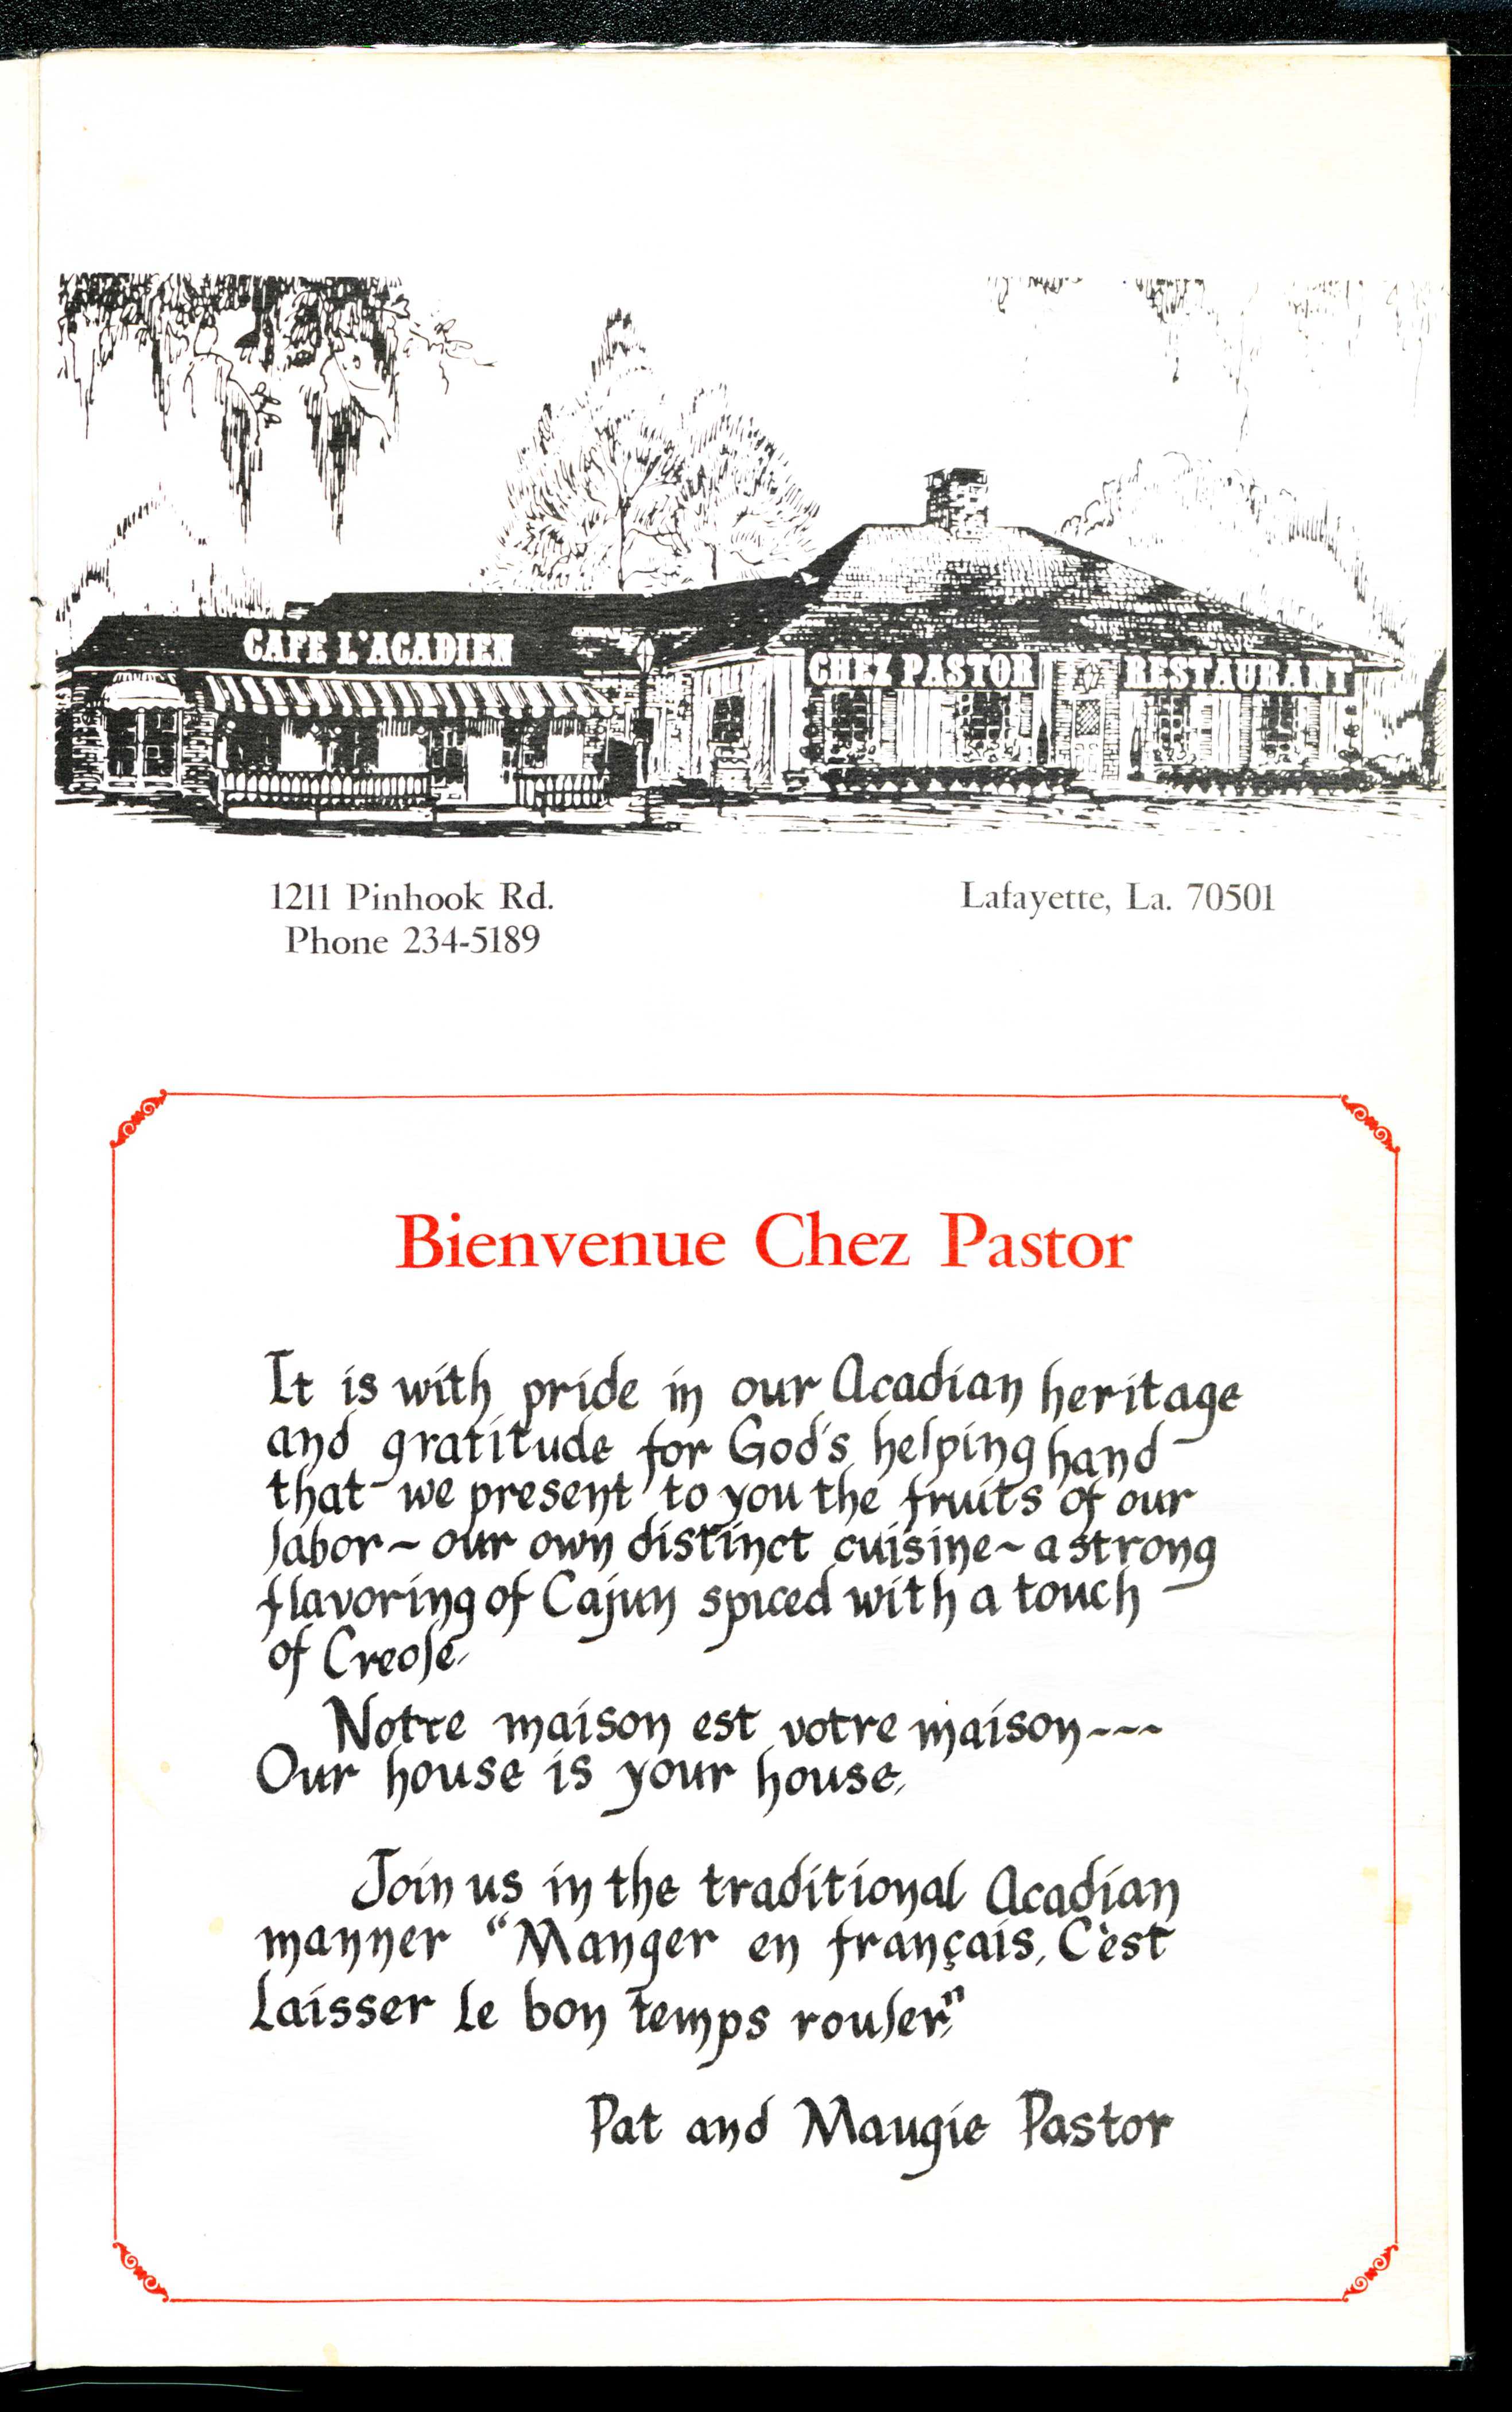 CAFE L'ACADIEN
CHEZ PASTOR RESTAURANT
1211 Pinhook Rd.
Phone 234-5189
Lafayette, La. 70501
Bienvenue Chez Pastor
It is with pride in our Acadian heritage
and gratitude for God's helping hand
that we present to you the fruits of our
labor~ our own distinct cuisine~ a strong
flavoring of Cajun spiced with a touch
of Creole.
Notre maison est votre maison~~~
Our house is your house.
Join us in the traditional Acadian
manner “Manger en français, C'est
Laisser Le bon temps rouler.”
Pat and Maugie Pastor